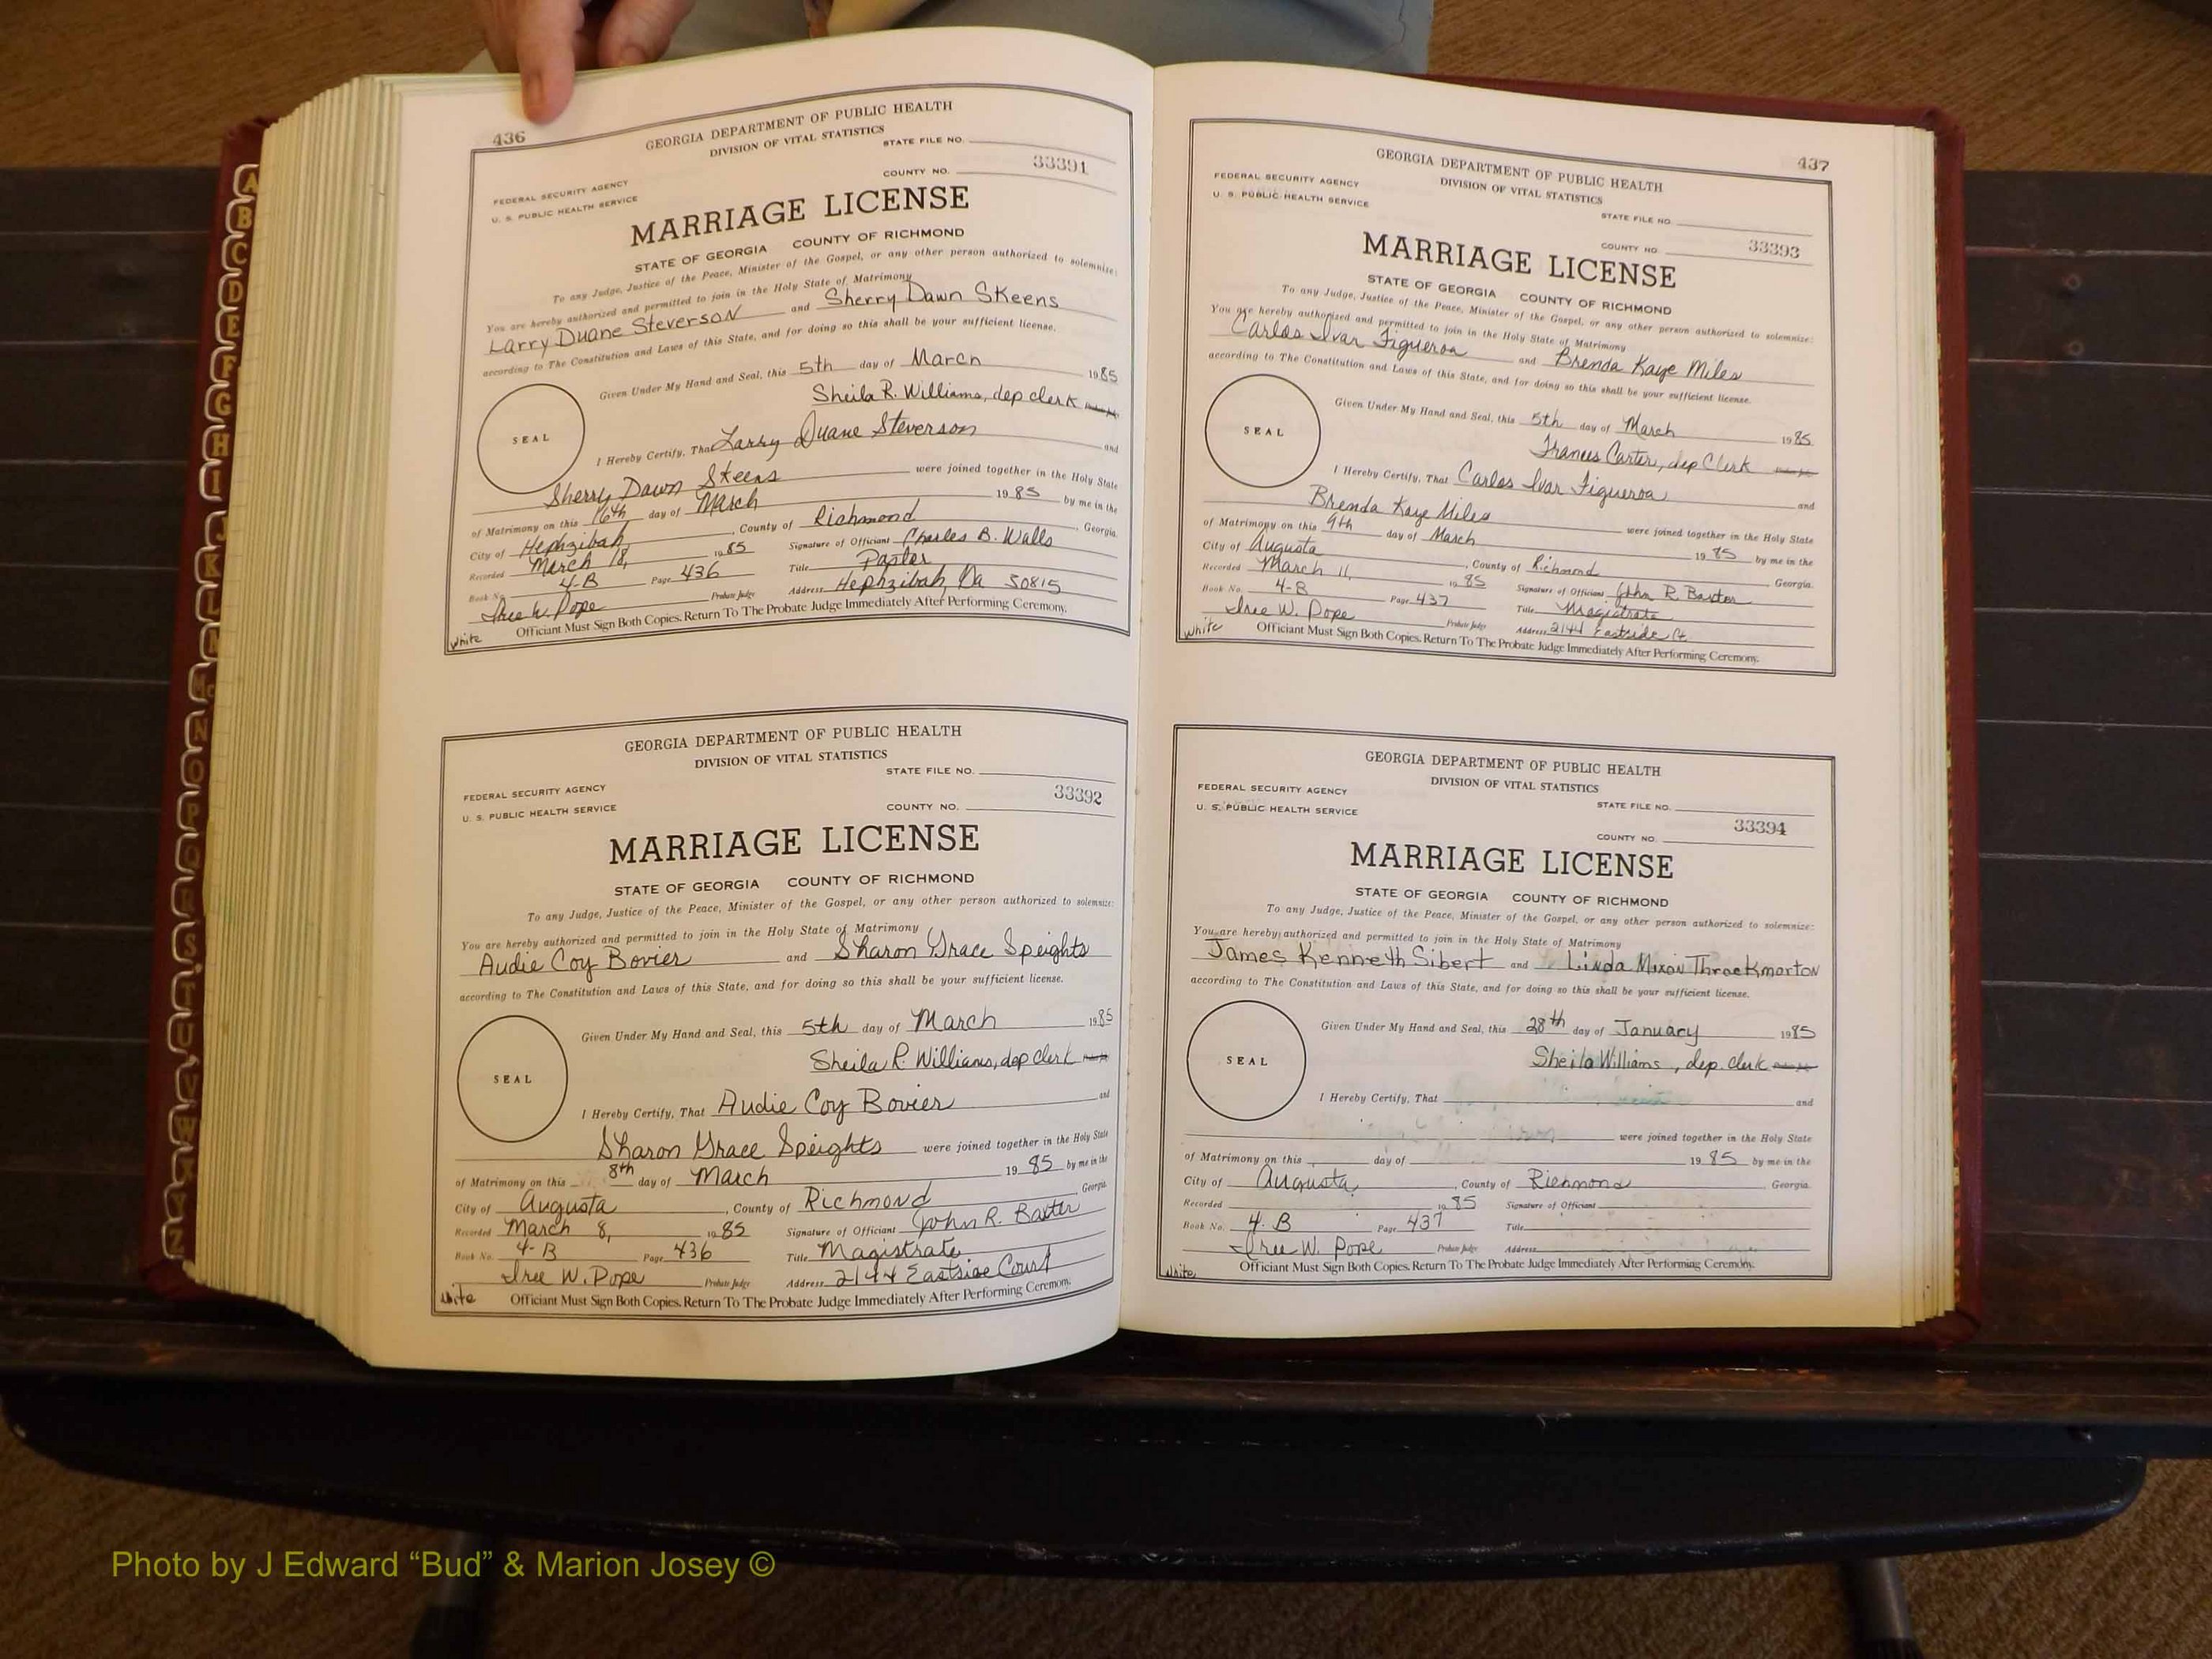 436
GEORGIA DEPARTMENT OF PUBLIC HEALTH
DIVISION OF VITAL STATISTICS
STATE FILE NO.
33391
COUNTY NO.
FEDERAL SECURITY AGENCY
U. S. PUBLIC HEALTH SERVICE
MARRIAGE LICENSE
STATE OF GEORGIA COUNTY OF RICHMOND
To any Judge, Justice of the Peace, Minister of the Gospel, or any other person authorized to solemnize:
You are hereby authorized and permitted to join in the Holy State of Matrimony
Larry Duane Steverson and Sherry Dawn Skeens
according to The Constitution and Laws of this State, and for doing so this shall be your sufficient license.
Given Under My Hand and Seal, this 5th day of March 1985
Sheila R. Williams, dep clerk
SEAL
I Hereby Certify, That Larry Duane Steverson and
Sherry Dawn Skeens were joined together in the Holy State
of Matrimony on this 16th day of March 1985 by me in the
City of Hephzibah, County of Richmond, Georgia.
Recorded March 18, 1985 Signature of Officiant Charles B. Walls
Book No. 4-B Page 436 Title Pastor
Probate Judge Address Hephzibah, Ga 30815
W. Pope
white Officiant Must Sign Both Copies. Return To The Probate Judge Immediately After Performing Ceremony.
GEORGIA DEPARTMENT OF PUBLIC HEALTH
DIVISION OF VITAL STATISTICS
STATE FILE NO.
FEDERAL SECURITY AGENCY
33392
U. S. PUBLIC HEALTH SERVICE COUNTY NO.
MARRIAGE LICENSE
STATE OF GEORGIA COUNTY OF RICHMOND
To any Judge, Justice of the Peace, Minister of the Gospel, or any other person authorized to solemnize:
You are hereby authorized and permitted to join in the Holy State of Matrimony
Audie Coy Bovier and Sharon Grace Speights
according to The Constitution and Laws of this State, and for doing so this shall be your sufficient license.
Given Under My Hand and Seal, this 5th day of March 1985
Sheila R. Williams, dep clerk
SEAL
I Hereby Certify, That Audie Coy Bovier and
Sharon Grace Speights were joined together in the Holy State
of Matrimony on this 8th day of March 1985 by me in the
City of Augusta, County of Richmond Georgia
Recorded March 8, 1985 Signature of Officiant John R. Baxter
Book No. 4-B Page 436 Title Magistrate
W. Pope Probate Judge Address 2144 Eastside Court
white Officiant Must Sign Both Copies. Return To The Probate Judge Immediately After Performing Ceremony.
437
GEORGIA DEPARTMENT OF PUBLIC HEALTH
DIVISION OF VITAL STATISTICS
FEDERAL SECURITY AGENCY
U. S. PUBLIC HEALTH SERVICE
STATE FILE NO.
COUNTY NO. 33393
MARRIAGE LICENSE
STATE OF GEORGIA COUNTY OF RICHMOND
To any Judge, Justice of the Peace, Minister of the Gospel, or any other person authorized to solemnize:
You are hereby authorized and permitted to join in the Holy State of Matrimony
Carlos Ivar Figueroa and Brenda Kaye Miles
according to The Constitution and Laws of this State, and for doing so this shall be your sufficient license.
Given Under My Hand and Seal, this 5th day of March 1985
Frances Carter, dep Clerk
SEAL
I Hereby Certify, That Carlos Ivar Figueroa and
Brenda Kaye Miles were joined together in the Holy State
of Matrimony on this 9th day of March 1985 by me in the
City of Augusta, County of Richmond Georgia.
Recorded March 11, 1985 Signature of Officiant John R. Baxter
Book No. 4-B Page 437 Title Magistrate
W. Pope Probate Judge Address 2144 Eastside Ct.
white Officiant Must Sign Both Copies. Return To The Probate Judge Immediately After Performing Ceremony.
GEORGIA DEPARTMENT OF PUBLIC HEALTH
DIVISION OF VITAL STATISTICS
FEDERAL SECURITY AGENCY
U. S. PUBLIC HEALTH SERVICE
STATE FILE NO.
33394
COUNTY NO.
MARRIAGE LICENSE
STATE OF GEORGIA COUNTY OF RICHMOND
To any Judge, Justice of the Peace, Minister of the Gospel, or any other person authorized to solemnize:
You are hereby authorized and permitted to join in the Holy State of Matrimony
James Kenneth Sibert and Linda Mixon Throckmorton
according to The Constitution and Laws of this State, and for doing so this shall be your sufficient license.
Given Under My Hand and Seal, this 28th day of January 1985
Sheila Williams, dep. clerk
SEAL
I Hereby Certify, That and
were joined together in the Holy State
of Matrimony on this day of 1985 by me in the
City of Augusta, County of Richmond, Georgia
Recorded 1985 Signature of Officiant
Book No. 4-B Page 437 Title
W. Pope Probate Judge Address
white Officiant Must Sign Both Copies. Return To The Probate Judge Immediately After Performing Ceremony.
A
B
C
D
E
F
G
H
I
J
K
L
M
Mc
N
O
P
Q
R
S
T
U
V
W
X
Y
Z
Photo by J Edward “Bud” & Marion Josey ©